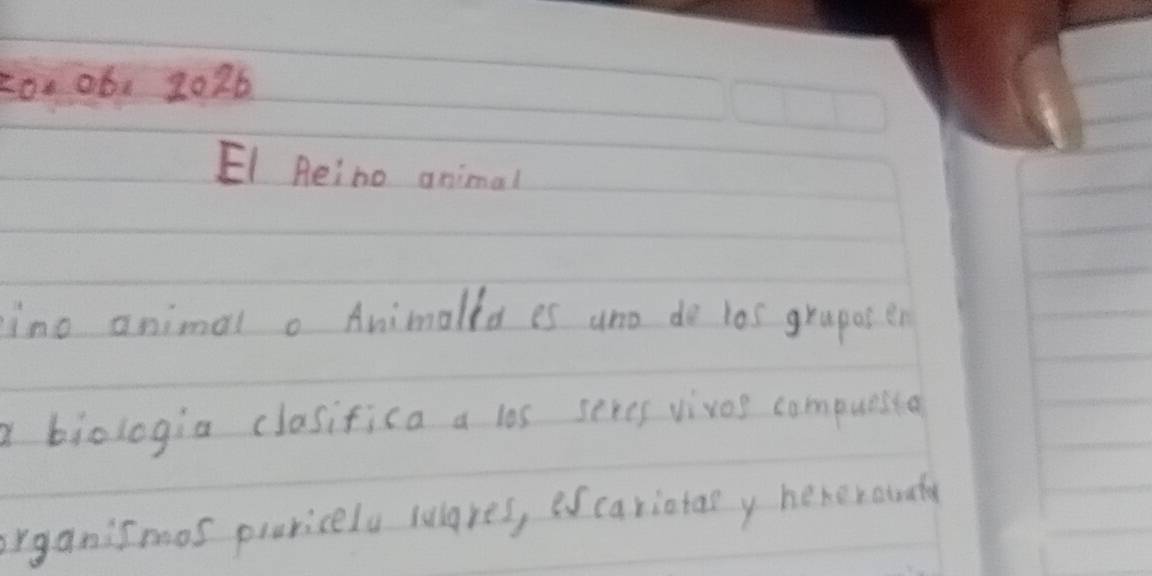 20. 06. 2026
El Reino animal
ino animal o Animalia es uno de los grupos en
a biologia clasifica a los seres vivos compuesta
organismos pluricelu lulares, escariotas y